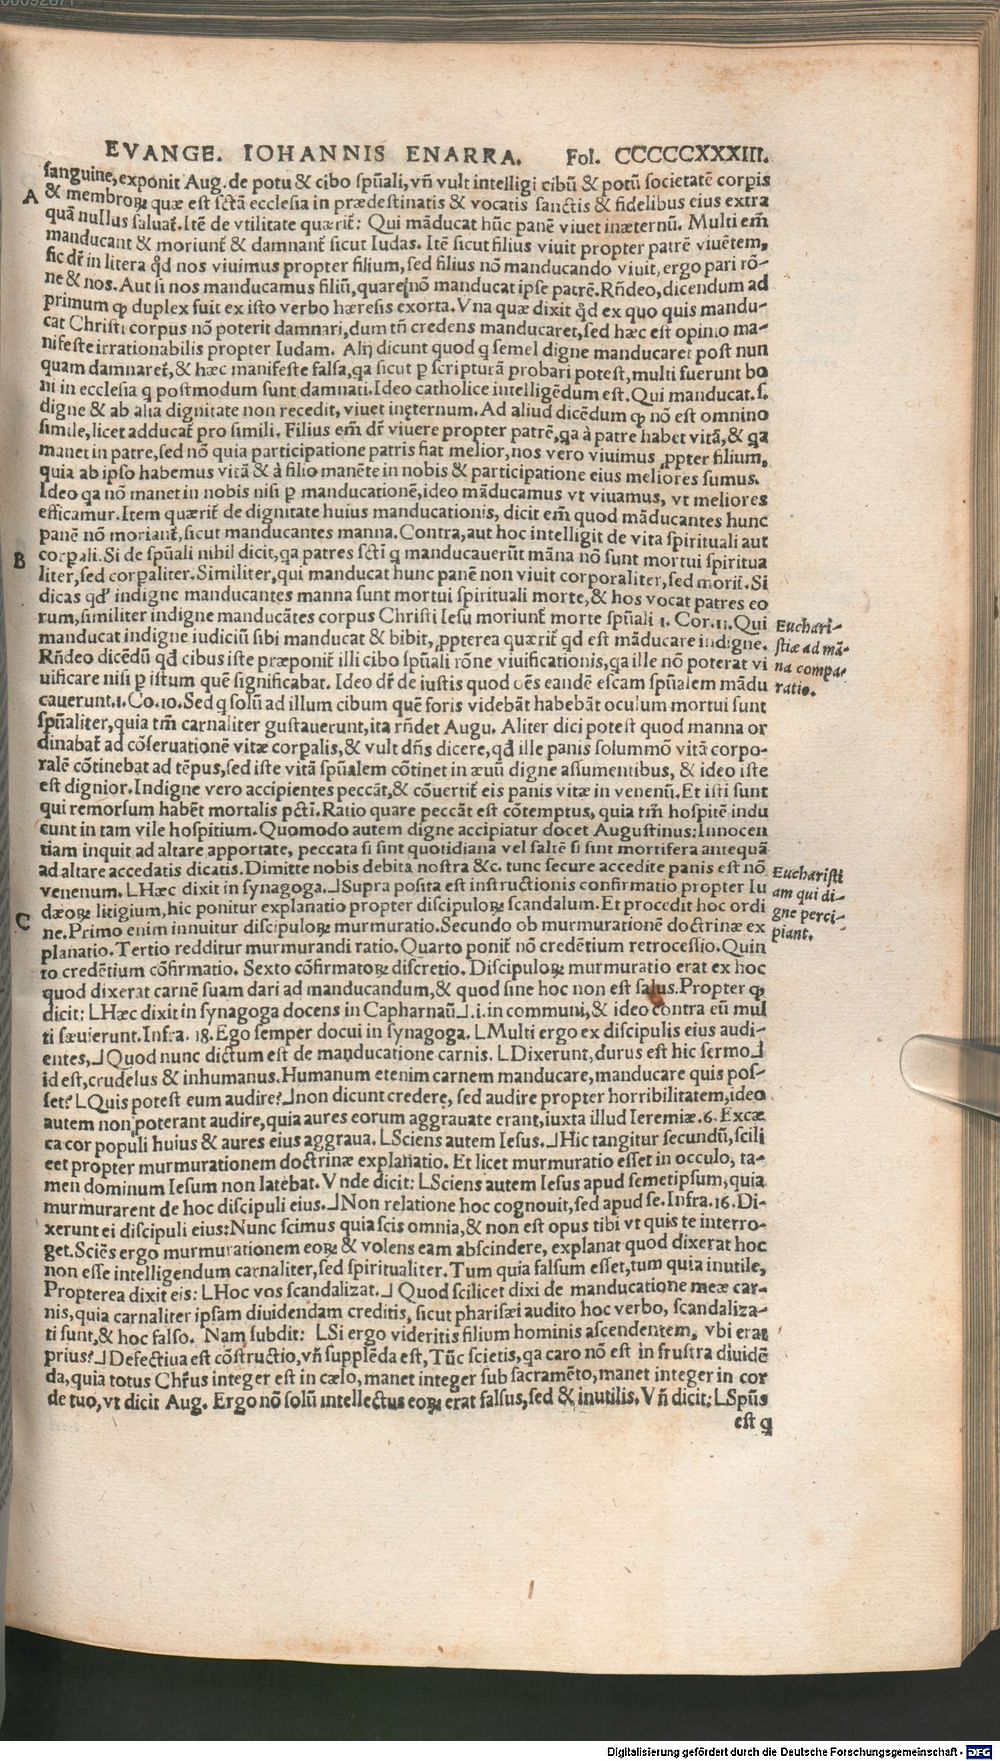 EVANGE. IOHANNIS ENARRA. Fol. CCCCCXXXIII.
sanguine, exponit Aug. de potu & cibo spũali, vñ vult intelligi cibũ & potũ societatẽ corpis
A & membroꝝ quæ est sctã ecclesia in prædestinatis & vocatis sanctis & fidelibus eius extra
quã nullus saluat̃. Itẽ de vtilitate quærit̃: Qui mãducat hũc panẽ viuet inæternũ. Multi em̃
manducant & moriunt̃ & damnant̃ sicut Iudas. Itẽ sicut filius viuit propter patrẽ viuẽtem,
sic dr̃ in litera qd̃ nos viuimus propter filium, sed filius nõ manducando viuit, ergo pari rõ-
ne & nos. Aut si nos manducamus filiũ, quare nõ manducat ipse patrẽ. Rñdeo, dicendum ad
primum ꝙ duplex fuit ex isto verbo hæresis exorta. Vna quæ dixit qd̃ ex quo quis mandu-
cat Christi corpus nõ poterit damnari, dum tñ credens manducaret, sed hæc est opinio ma-
nifeste irrationabilis propter Iudam. Alij dicunt quod q semel digne manducaret post nun
quam damnaret̃, & hæc manifeste falsa, qa sicut p scripturã probari potest, multi fuerunt bo
ni in ecclesia q postmodum sunt damnati. Ideo catholice intelligẽdum est. Qui manducat. s.
digne & ab alia dignitate non recedit, viuet inęternum. Ad aliud dicẽdum ꝙ nõ est omnino
simile, licet adducat̃ pro simili. Filius em̃ dr̃ viuere propter patrẽ, qa à patre habet vitã, & qa
manet in patre, sed nõ quia participatione patris fiat melior, nos vero viuimus ꝓpter filium,
quia ab ipso habemus vitã & à filio manẽte in nobis & participatione eius meliores sumus.
Ideo qa nõ manet in nobis nisi p manducationẽ, ideo mãducamus vt viuamus, vt meliores
efficamur. Item quærit̃ de dignitate huius manducationis, dicit em̃ quod mãducantes hunc
panẽ nõ moriant̃, sicut manducantes manna. Contra, aut hoc intelligit de vita spirituali aut
B corpali. Si de spũali nihil dicit, qa patres scti q manducauerũt mãna nõ sunt mortui spiritua
liter, sed corpaliter. Similiter, qui manducat hunc panẽ non viuit corporaliter, sed morit̃. Si
dicas qd̃ indigne manducantes manna sunt mortui spirituali morte, & hos vocat patres eo
rum, similiter indigne manducãtes corpus Christi Iesu moriunt̃ morte spũali 1. Cor. 11. Qui
manducat indigne iudiciũ sibi manducat & bibit, ꝓpterea quærit̃ qd est mãducare indigne.
Rñdeo dicẽdũ qd̃ cibus iste præponit̃ illi cibo spũali rõne viuificationis, qa ille nõ poterat vi
uificare nisi p istum quẽ significabat. Ideo dr̃ de iustis quod oẽs eandẽ escam spũalem mãdu
cauerunt. 1. Co. 10. Sed q solũ ad illum cibum quẽ foris videbãt habebãt oculum mortui sunt
spũaliter, quia tm̃ carnaliter gustauerunt, ita rñdet Augu. Aliter dici potest quod manna or
dinabat̃ ad cõseruationẽ vitæ corpalis, & vult dñs dicere, qd̃ ille panis solummõ vitã corpo-
ralẽ cõtinebat ad tẽpus, sed iste vitã spũalem cõtinet in æuũ digne assumentibus, & ideo iste
est dignior. Indigne vero accipientes peccãt, & cõuertit̃ eis panis vitæ in venenũ. Et isti sunt
qui remorsum habẽt mortalis pcti. Ratio quare peccãt est cõtemptus, quia tm̃ hospitẽ indu
cunt in tam vile hospitium. Quomodo autem digne accipiatur docet Augustinus: Innocen
tiam inquit ad altare apportate, peccata si sint quotidiana vel saltẽ si sint mortifera antequã
ad altare accedatis dicatis. Dimitte nobis debita nostra &c. tunc secure accedite panis est nõ
venenum. ⌊Hæc dixit in synagoga.⌋ Supra posita est instructionis confirmatio propter Iu
dæoꝝ litigium, hic ponitur explanatio propter discipuloꝝ scandalum. Et procedit hoc ordi
C ne. Primo enim innuitur discipuloꝝ murmuratio. Secundo ob murmurationẽ doctrinæ ex
planatio. Tertio redditur murmurandi ratio. Quarto ponit̃ nõ credẽtium retrocessio. Quin
to credẽtium cõfirmatio. Sexto cõfirmatoꝝ discretio. Discipuloꝝ murmuratio erat ex hoc
quod dixerat carnẽ suam dari ad manducandum, & quod sine hoc non est salus. Propter ꝙ
dicit: ⌊Hæc dixit in synagoga docens in Capharnaũ⌋. i. in communi, & ideo contra eũ mul
ti sæuierunt. Infra. 18. Ego semper docui in synagoga. ⌊Multi ergo ex discipulis eius audi-
entes,⌋ Quod nunc dictum est de manducatione carnis. ⌊Dixerunt, durus est hic sermo⌋
id est, crudelus & inhumanus. Humanum etenim carnem manducare, manducare quis pos-
set? ⌊Quis potest eum audire?⌋ non dicunt credere, sed audire propter horribilitatem, ideo
autem non poterant audire, quia aures eorum aggrauate erant, iuxta illud Ieremiæ. 6. Excæ
ca cor populi huius & aures eius aggraua. ⌊Sciens autem Iesus.⌋ Hic tangitur secundũ, scili
cet propter murmurationem doctrinæ explanatio. Et licet murmuratio esset in occulo, ta-
men dominum Iesum non latebat. Vnde dicit: ⌊Sciens autem Iesus apud semetipsum, quia
murmurarent de hoc discipuli eius.⌋ Non relatione hoc cognouit, sed apud se. Infra. 16. Di-
xerunt ei discipuli eius: Nunc scimus quia scis omnia, & non est opus tibi vt quis te interro-
get. Sciẽs ergo murmurationem eoꝝ & volens eam abscindere, explanat quod dixerat hoc
non esse intelligendum carnaliter, sed spiritualiter. Tum quia falsum esset, tum quia inutile,
Propterea dixit eis: ⌊Hoc vos scandalizat.⌋ Quod scilicet dixi de manducatione meæ car-
nis, quia carnaliter ipsam diuidendam creditis, sicut pharisæi audito hoc verbo, scandaliza-
ti sunt, & hoc falso. Nam subdit: ⌊Si ergo videritis filium hominis ascendentem, vbi erat
prius?⌋ Defectiua est cõstructio, vñ supplẽda est, Tũc scietis, qa caro nõ est in frustra diuidẽ
da, quia totus Chr̃us integer est in cælo, manet integer sub sacramẽto, manet integer in cor
de tuo, vt dicit Aug. Ergo nõ solũ intellectus eoꝝ erat falsus, sed & inutilis. Vñ dicit: ⌊Spũs
est q
Euchari-
stiæ ad mã-
na compa-
ratio.
Eucharisti
am qui di-
gne perci-
piant.
Digitalisierung gefördert durch die Deutsche Forschungsgemeinschaft - DFG